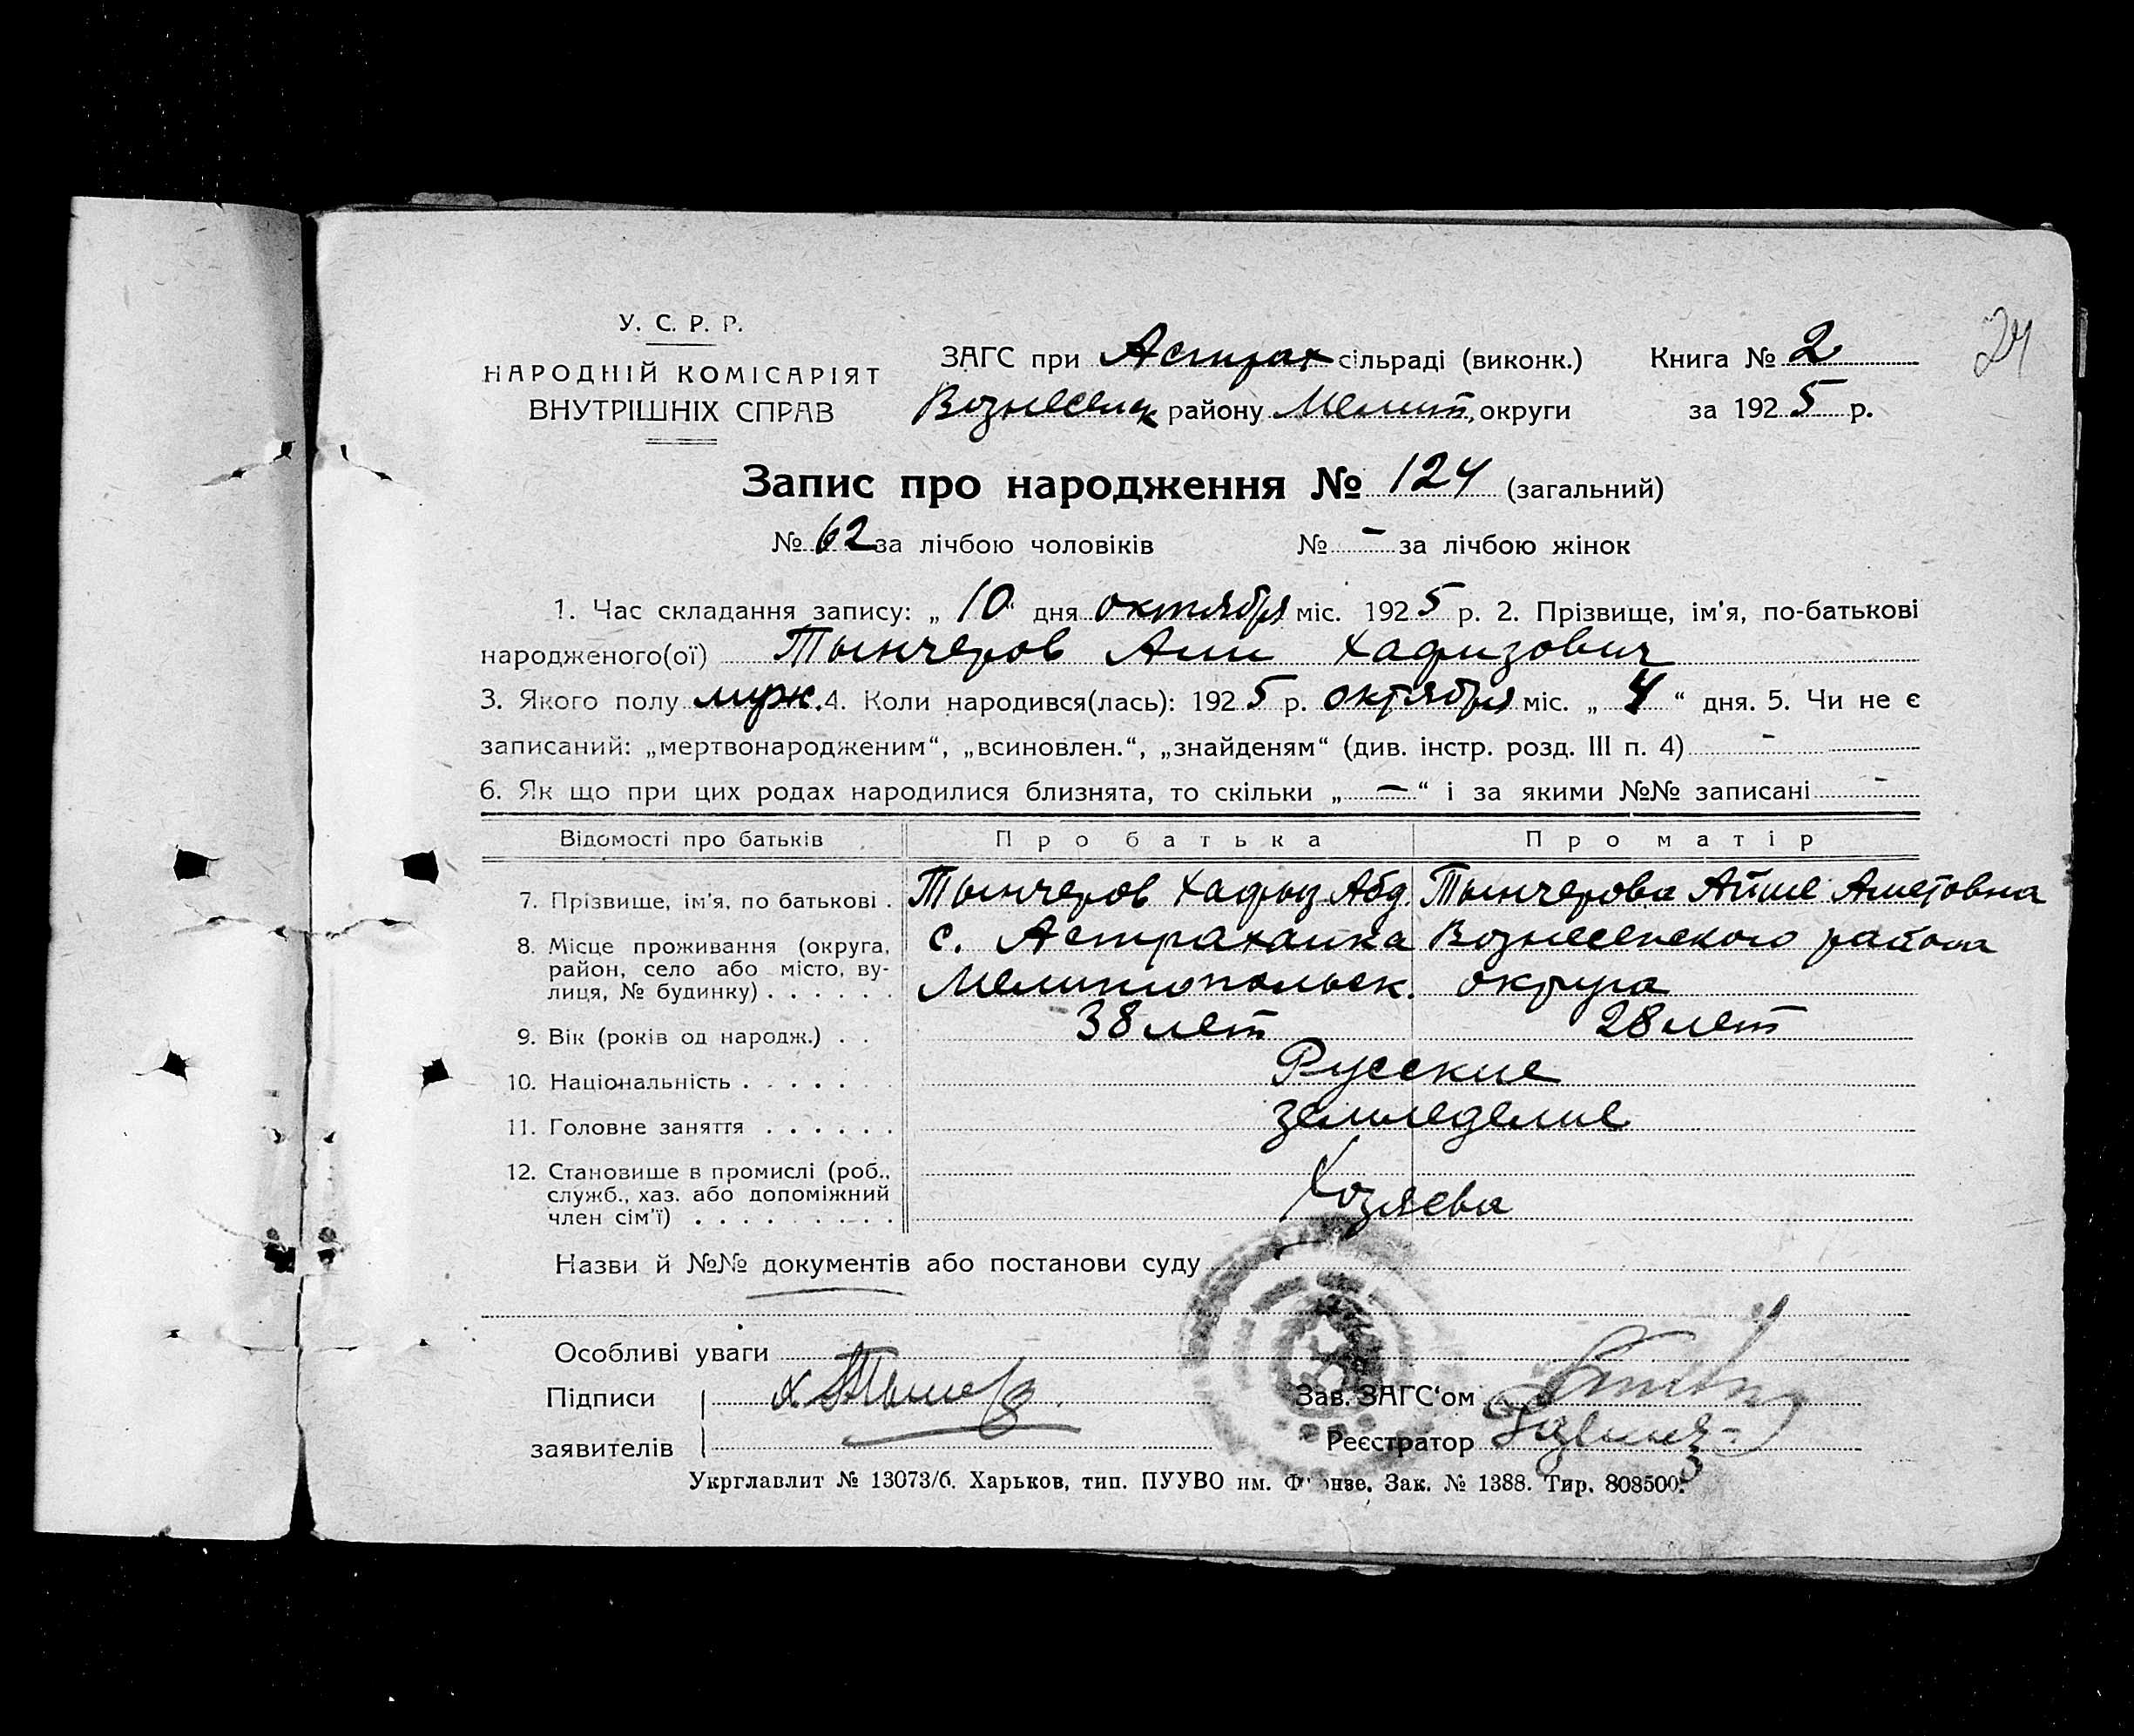 24
У. С. Р. Р.
НАРОДНІЙ КОМІСАРІЯТ
ВНУТРІШНІХ СПРАВ
ЗАГС при Астрах сільраді (виконк.) Книга № 2
Вознесенск району Мелит. округи за 1925 р.
Запис про народження № 124 (загальний)
№ 62 за лічбою чоловіків № - за лічбою жінок
1. Час складання запису: „ 10 “ дня октября міс. 1925 р. 2. Прізвище, ім'я, по-батькові
народженого(ої) Тынчеров Али Хафизович
3. Якого полу муж. 4. Коли народився(лась): 1925 р. октября міс. „ 4 “ дня. 5. Чи не є
записаний: „мертвонародженим“, „всиновлен.“, „знайденям“ (див. інстр. розд. III п. 4) -
6. Як що при цих родах народилися близнята, то скільки „ — “ і за якими №№ записані -
Відомості про батьків Про батька Про матір
7. Прізвище, ім'я, по батькові . Тынчеров Хафыз Абд. Тынчерова Айше Аметовна
8. Місце проживання (округа, район, село або місто, вулиця, № будинку) . . . . . . с. Астраханка Вознесенского района
Мелитопольск. округа
9. Вік (років од народж.) . . 38 лет 28 лет
10. Національність . . . . . Русские
11. Головне заняття . . . . . . земледелие
12. Становище в промислі (роб., служб., хаз. або допоміжний член сім'ї) . . . . . . . . . Хозяева
Назви й №№ документів або постанови суду
Особливі уваги
Підписи
заявителів
Зав. ЗАГС‘ом
Реєстратор
Укрглавлит № 13073/б. Харьков, тип. ПУУВО им. Фрунзе. Зак. № 1388. Тир. 808500.